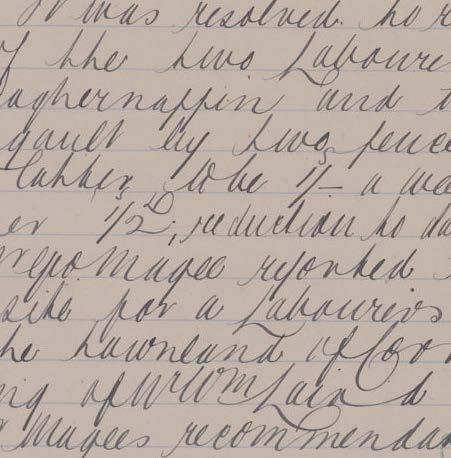 It was resolved to r
of the two Laboure
aghernappin and t
gault by two pence
latter to be 1/- a wee
er 1/2D; reduction to da
Magee reported
site for a Labourers
he townland of Cor
ng of Mr Wm Laird
Magees recommenda